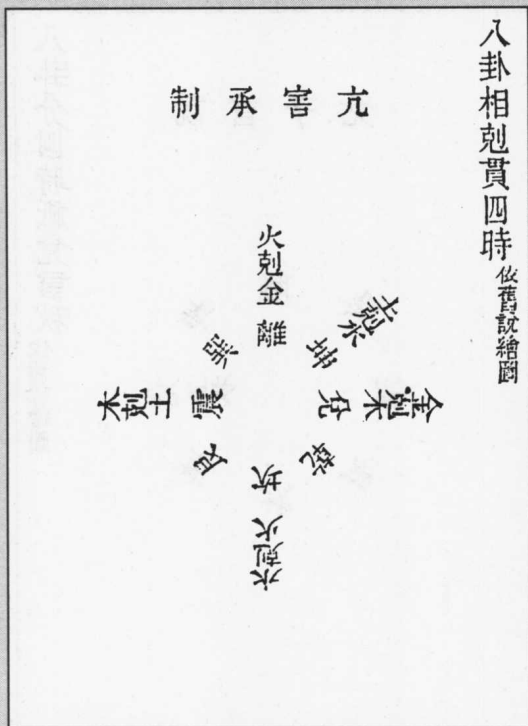 八卦相剋貫四時 依舊說繪圖
亢害承制
火剋金
離
土剋水
坤
金剋木
兌
乾
坎
水剋火
艮
震
木剋土
巽